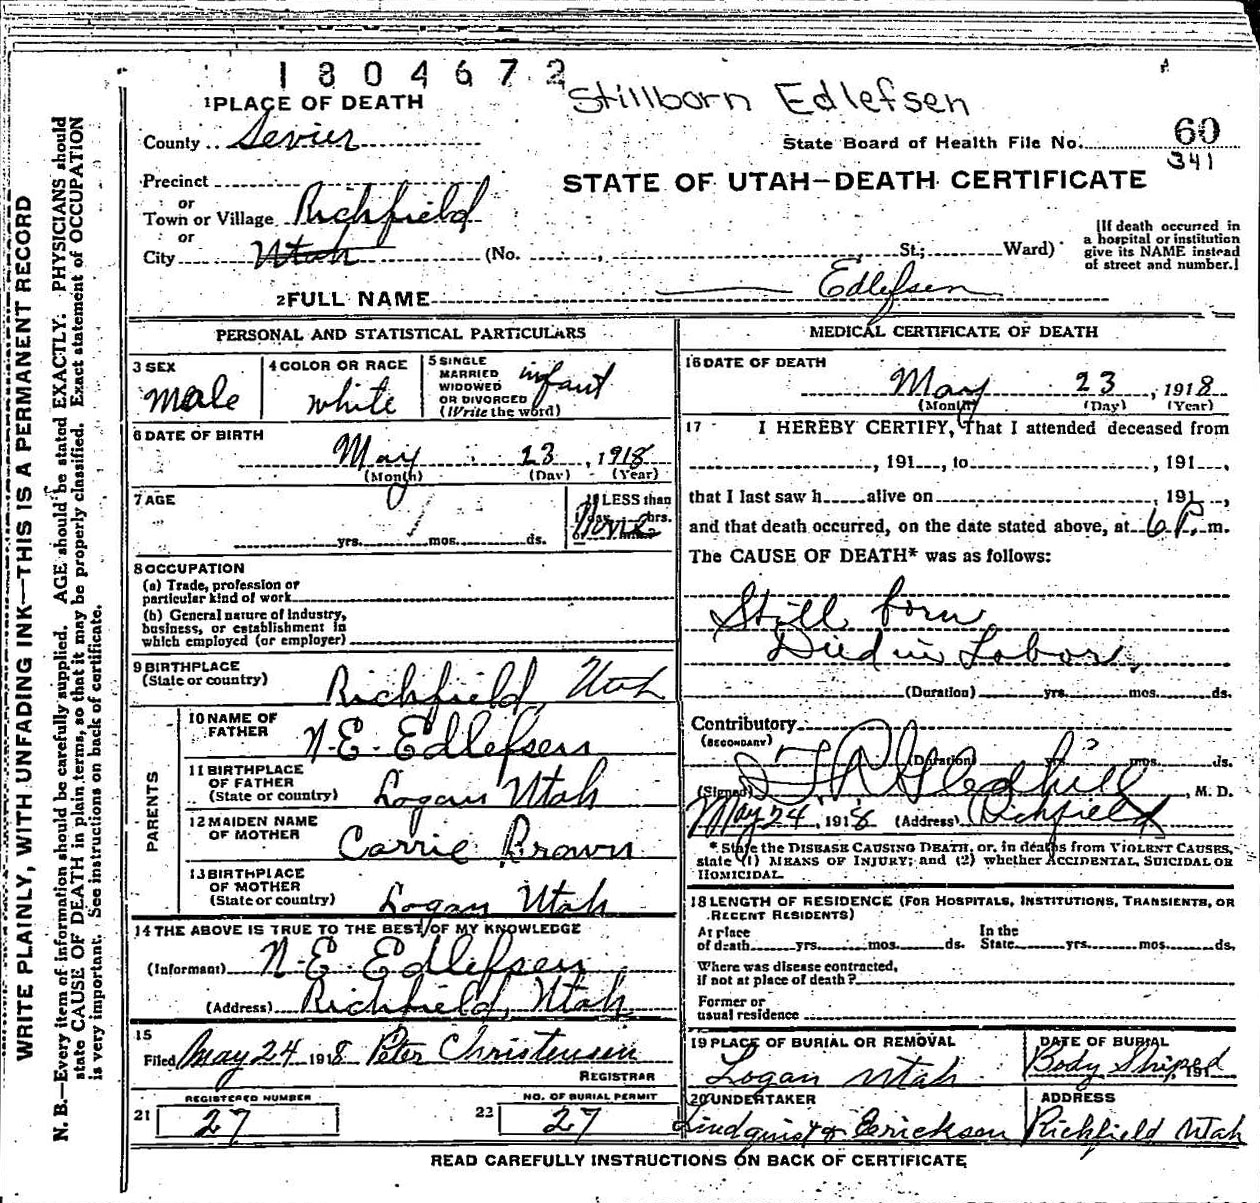 1804672
Stillborn Edlefsen
1 PLACE OF DEATH
County Sevier
State Board of Health File No. 60
341
Precinct
or
Town or Village Richfield
or
City Utah (No. St.; Ward)
STATE OF UTAH—DEATH CERTIFICATE
[If death occurred in
a hospital or institution
give its NAME instead
of street and number.]
2 FULL NAME Edlefsen
PERSONAL AND STATISTICAL PARTICULARS
3 SEX
Male
4 COLOR OR RACE
White
5 SINGLE
MARRIED
WIDOWED
OR DIVORCED
(Write the word)
infant
6 DATE OF BIRTH
May 23, 1918
(Month) (Day) (Year)
7 AGE
yrs. mos. ds.
If LESS than
hrs.
None
8 OCCUPATION
(a) Trade, profession or
particular kind of work
(b) General nature of industry,
business, or establishment in
which employed (or employer)
9 BIRTHPLACE
(State or country)
Richfield, Utah
PARENTS
10 NAME OF
FATHER
N. E. Edlefsen
11 BIRTHPLACE
OF FATHER
(State or country)
Logan Utah
12 MAIDEN NAME
OF MOTHER
Carrie Brown
13 BIRTHPLACE
OF MOTHER
(State or country)
Logan Utah
14 THE ABOVE IS TRUE TO THE BEST OF MY KNOWLEDGE
(Informant) N. E. Edlefsen
(Address) Richfield, Utah
15
Filed May 24 1918 Peter Christensen
REGISTRAR
REGISTERED NUMBER
21 27
NO. OF BURIAL PERMIT
22 27
MEDICAL CERTIFICATE OF DEATH
16 DATE OF DEATH
May 23, 1918
(Month) (Day) (Year)
17 I HEREBY CERTIFY, That I attended deceased from
, 191 , to , 191 ,
that I last saw h alive on , 191 ,
and that death occurred, on the date stated above, at 6 P. m.
The CAUSE OF DEATH* was as follows:
Still born
Died in Labor.
(Duration) yrs. mos. ds.
Contributory
(SECONDARY)
(Duration) yrs. mos. ds.
(Signed) Gledhill, M. D.
May 24, 1918 (Address) Richfield
*State the DISEASE CAUSING DEATH, or, in deaths from VIOLENT CAUSES,
state (1) MEANS OF INJURY; and (2) whether ACCIDENTAL, SUICIDAL OR
HOMICIDAL
18 LENGTH OF RESIDENCE (FOR HOSPITALS, INSTITUTIONS, TRANSIENTS, OR
RECENT RESIDENTS)
At place
of death yrs. mos. ds.
In the
State yrs. mos. ds.
Where was disease contracted,
if not at place of death?
Former or
usual residence
19 PLACE OF BURIAL OR REMOVAL
Logan Utah
DATE OF BURIAL
Body Shiped
191
20 UNDERTAKER
Lindquist & Erickson
ADDRESS
Richfield Utah
READ CAREFULLY INSTRUCTIONS ON BACK OF CERTIFICATE
WRITE PLAINLY, WITH UNFADING INK—THIS IS A PERMANENT RECORD
N. B.—Every item of information should be carefully supplied. AGE should be stated EXACTLY. PHYSICIANS should
state CAUSE OF DEATH in plain terms, so that it may be properly classified. Exact statement of OCCUPATION
is very important. See instructions on back of certificate.